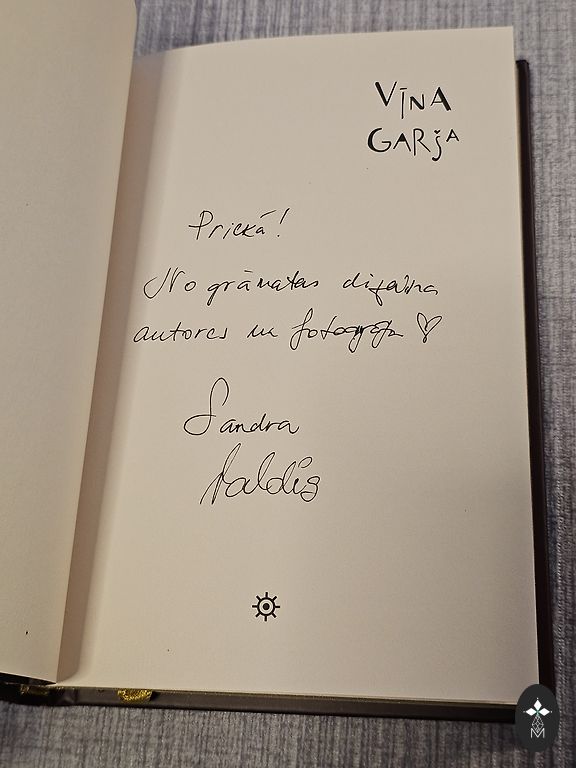 VĪNA
GARŠA
Priekā!
No grāmatas dizaina
autores un fotogrāfa ♡
Sandra
Valdis
M